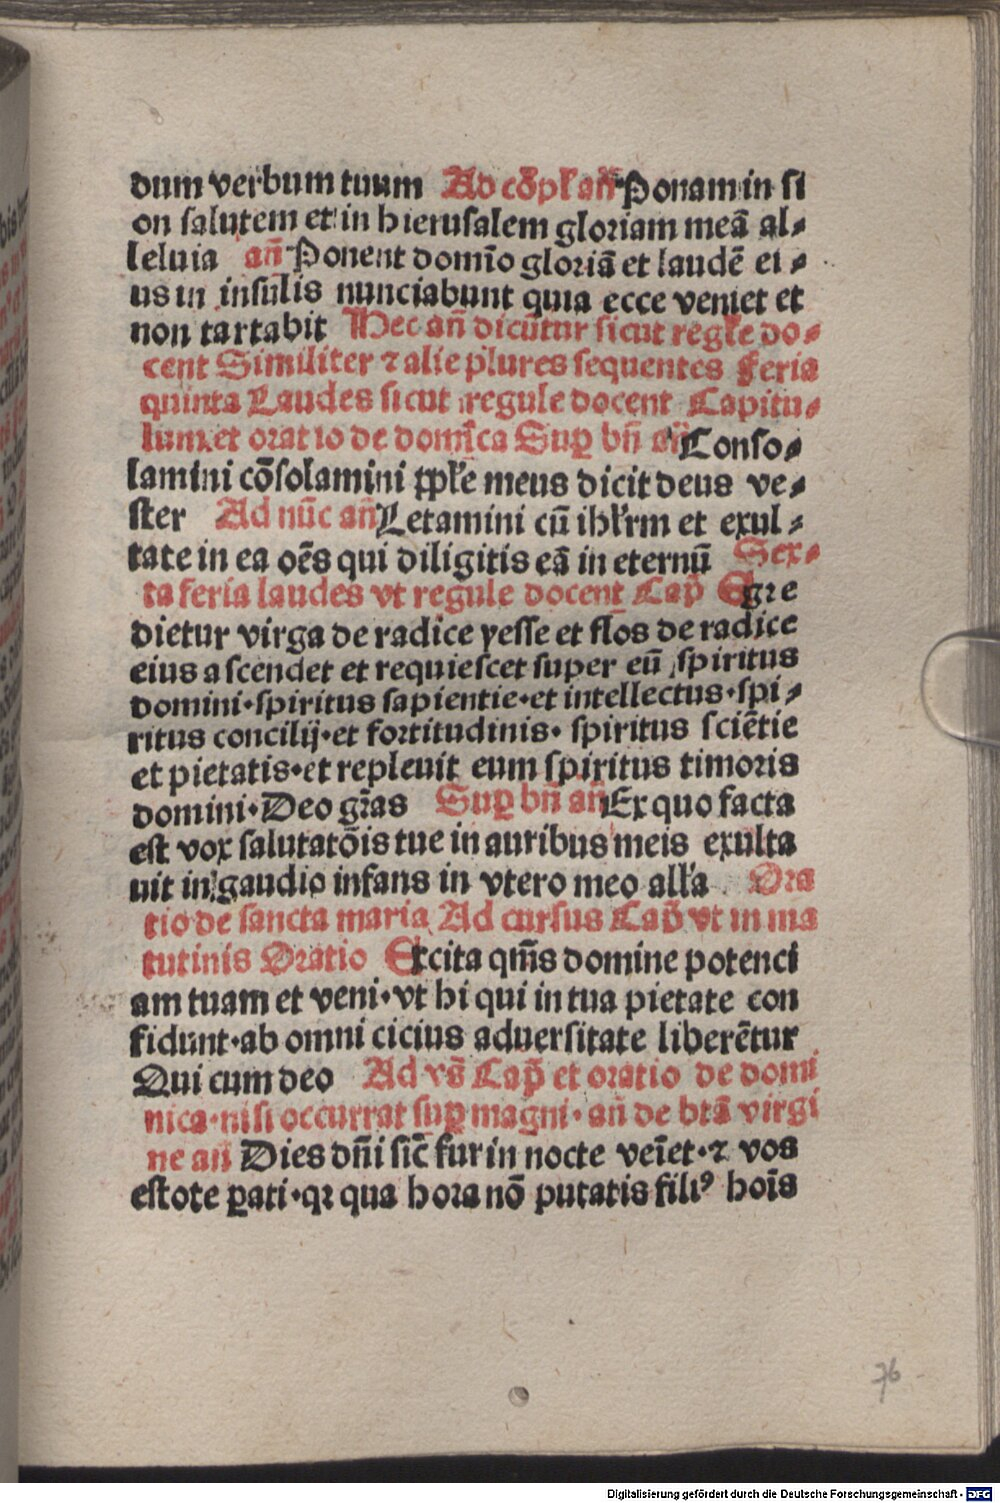 dum verbum tuum Ad cōpƚ añ Ponam in si
on salutem et in hierusalem gloriam meā al⸗
leluia añ Ponent domīo gloriā et laudē ei⸗
us in insulis nunciabunt quia ecce veniet et
non tartabit Hec añ dicūtur sicut regƚe do⸗
cent Similiter ⁊ alie plures sequentes Feria
quinta Laudes sicut regule docent Capitu⸗
lum et oratio de domīca Suꝑ bñ añ Conso⸗
lamini cōsolamini ppƚe meus dicit deus ve⸗
ster Ad nūc añ Letamini cū ihƚrm et exul⸗
tate in ea oēs qui diligitis eā in eternū Sex⸗
ta feria laudes vt regule docent Cap̄ Egre
dietur virga de radice yesse et flos de radice
eius ascendet et requiescet super eū spiritus
domini·spiritus sapientie·et intellectus·spi⸗
ritus concilij·et fortitudinis· spiritus sciētie
et pietatis·et repleuit eum spiritus timoris
domini·Deo gr̄as Suꝑ bñ añ Ex quo facta
est vox salutatōis tue in auribus meis exulta
uit in gaudio infans in vtero meo alƚa Ora
tio de sancta maria Ad cursus Cap̄ vt in ma
tutinis Oratio Excita qm̄s domine potenci
am tuam et veni·vt hi qui in tua pietate con
fidunt·ab omni cicius aduersitate liberētur
Qui cum deo Ad vs̄ Cap̄ et oratio de domi
nica·nisi occurrat suꝑ magni· añ de btā virgi
ne añ Dies dñi sic̄ fur in nocte veīet·⁊ vos
estote ꝑati·qꝛ qua hora nō putatis filiꝰ hoīs
76
Digitalisierung gefördert durch die Deutsche Forschungsgemeinschaft - DFG